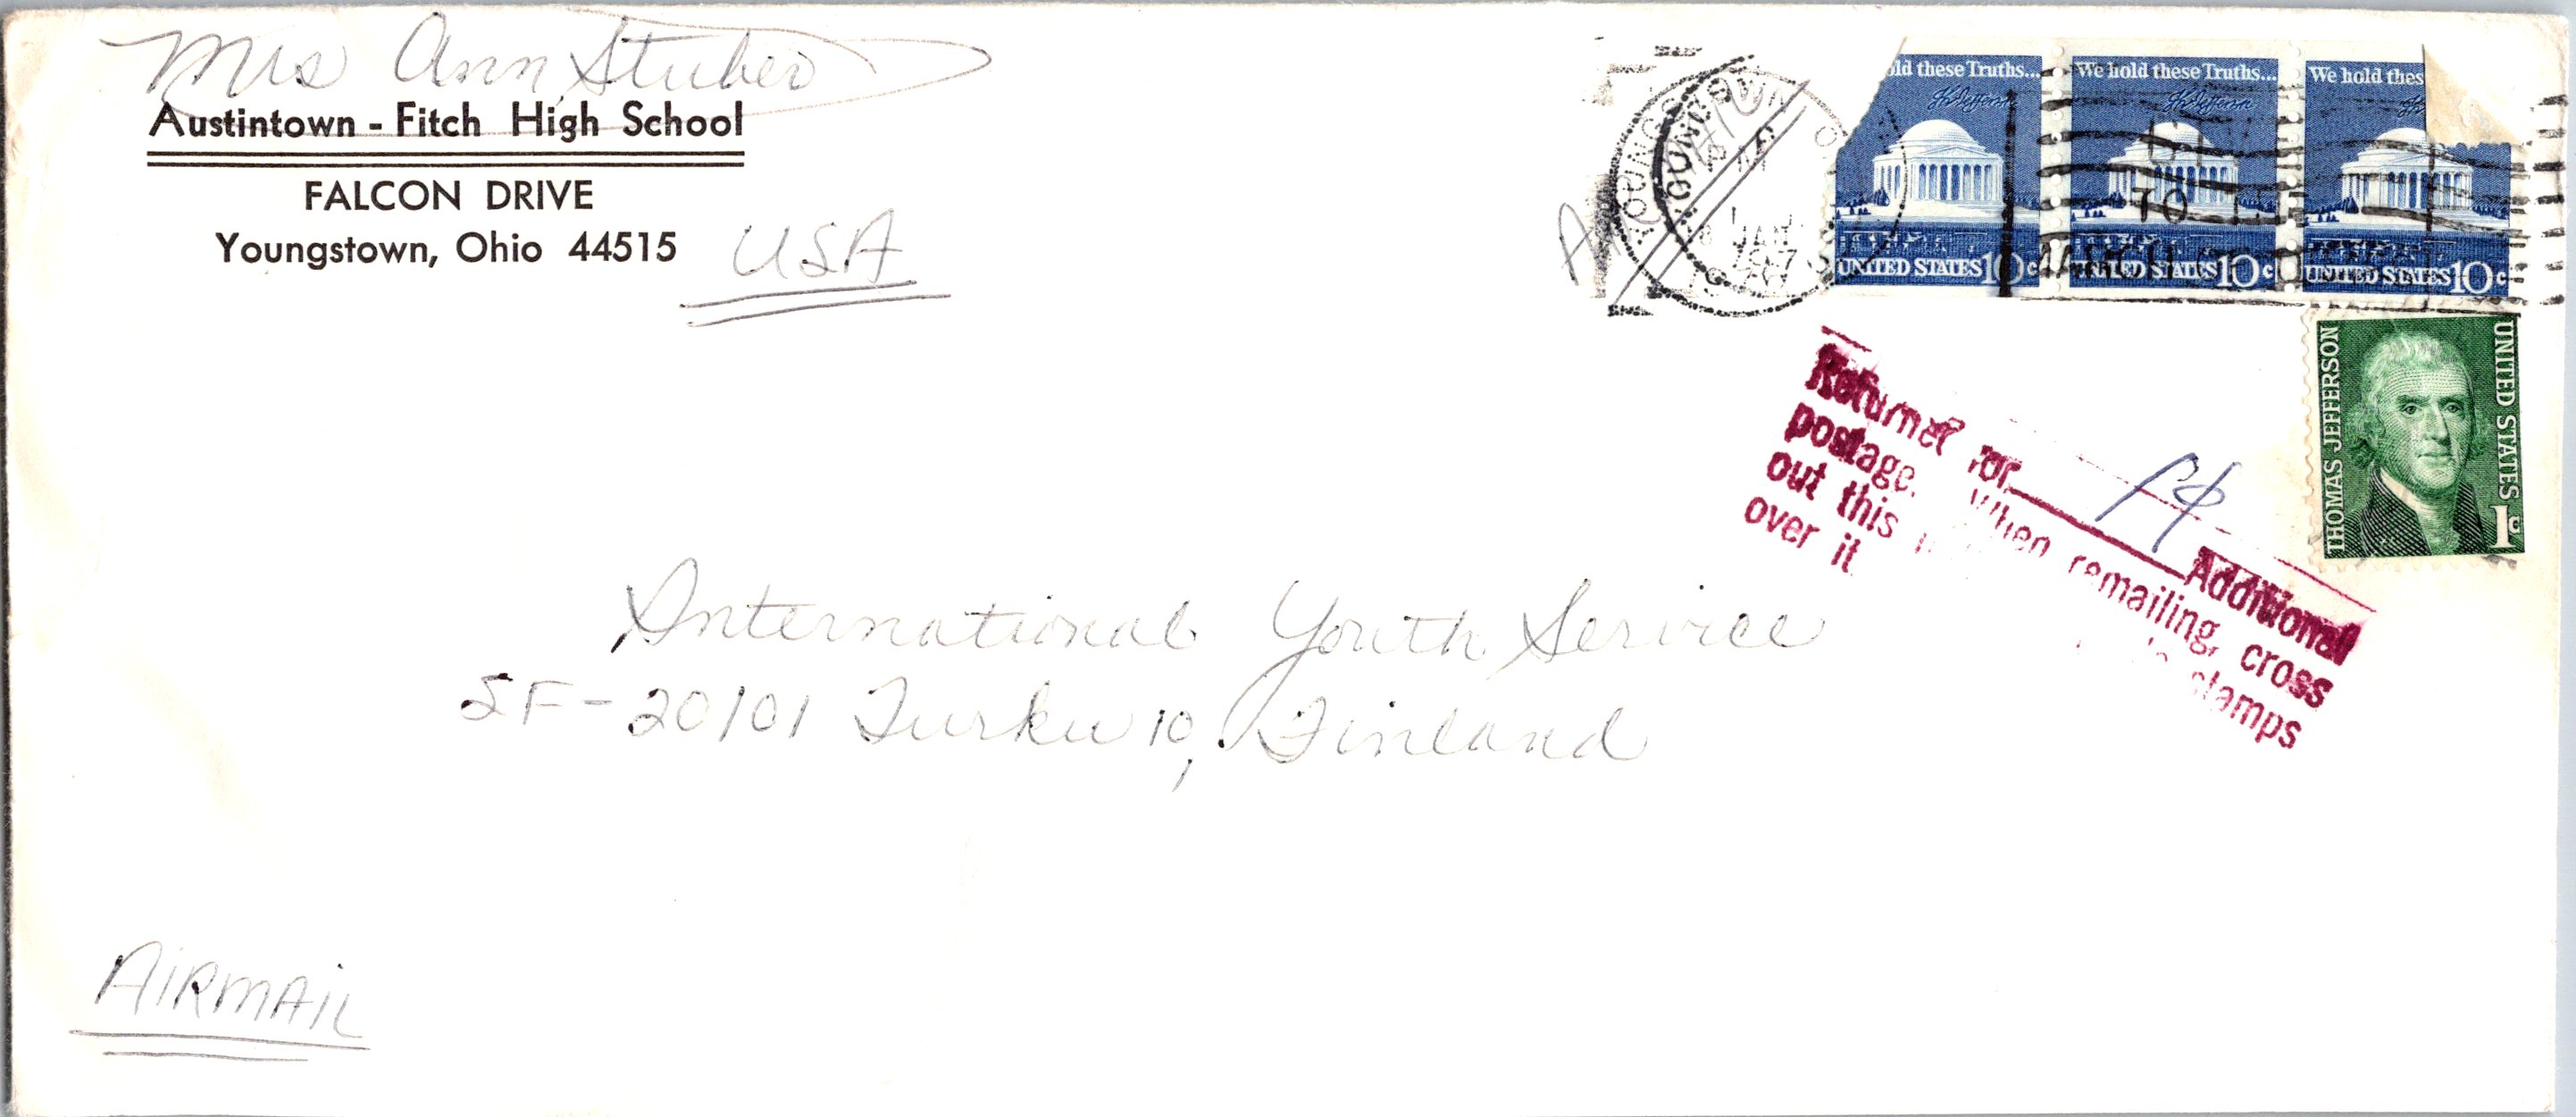 Mrs Ann Stuber
Austintown - Fitch High School
FALCON DRIVE
Youngstown, Ohio 44515
USA
YOUNGSTOWN
JAN
old these Truths...
We hold these Truths...
We hold thes
UNITED STATES 10c
UNITED STATES 10c
UNITED STATES 10c
THOMAS JEFFERSON
UNITED STATES
1c
Returned for Additional
postage. When remailing, cross
out this
stamps
over it
International Youth Service
SF-20101 Turku 10, Finland
AIRMAIL